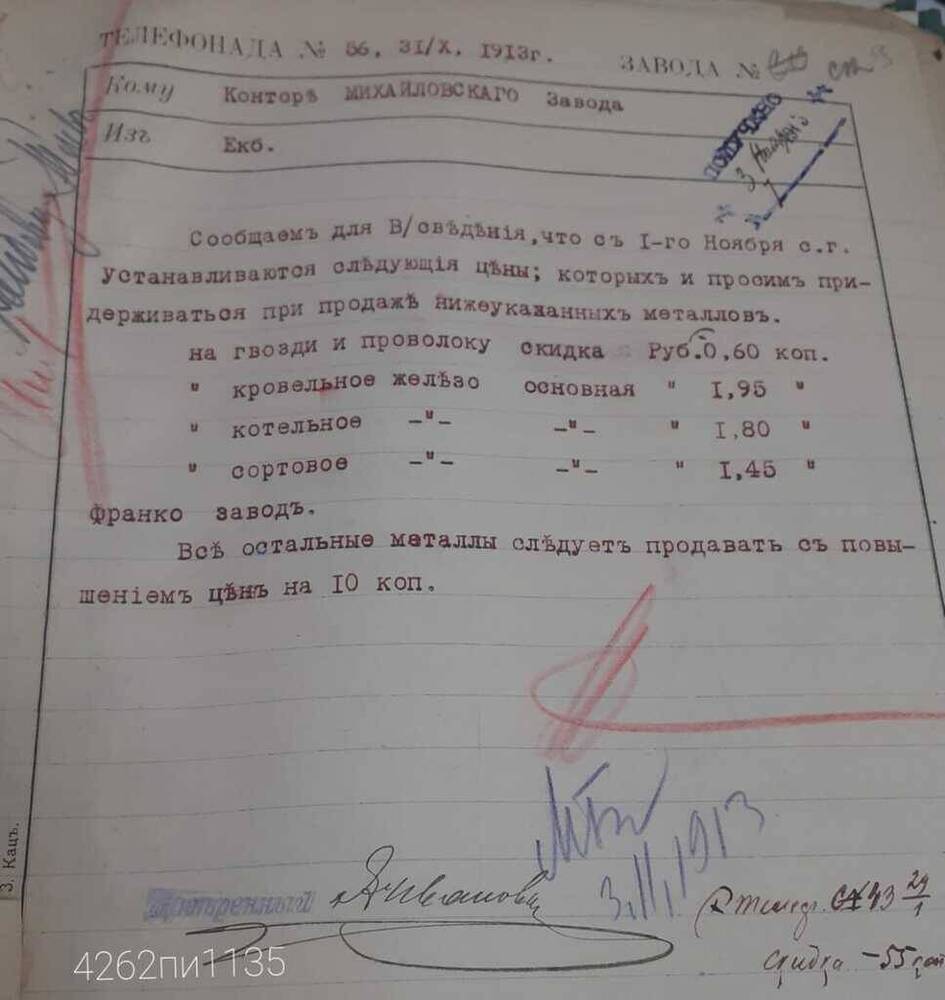 ТЕЛЕФОНАДА № 56. 31/X. 1913г. ЗАВОДА №
Кому Конторѣ МИХАЙЛОВСКАГО Завода
Изъ Екб.
ПОЛУЧЕНО
3
Сообщаемъ для В/свѣдѣнія,что съ I-го Ноября с.г.
Устанавливаются слѣдующія цѣны; которыхъ и просимъ при-
держиваться при продажѣ нижеуказанныхъ металловъ.
на гвозди и проволоку скидка Руб.0,60 коп.
" кровельное желѣзо основная " I,95 "
" котельное -"- -"- " I,80 "
" сортовое -"- -"- " I,45 "
Франко заводъ.
Всѣ остальные металлы слѣдуетъ продавать съ повы-
шеніемъ цѣнъ на IO коп.
3.II.1913
Довѣренный
скидка -55 коп
З. Кацъ.
4262пи1135